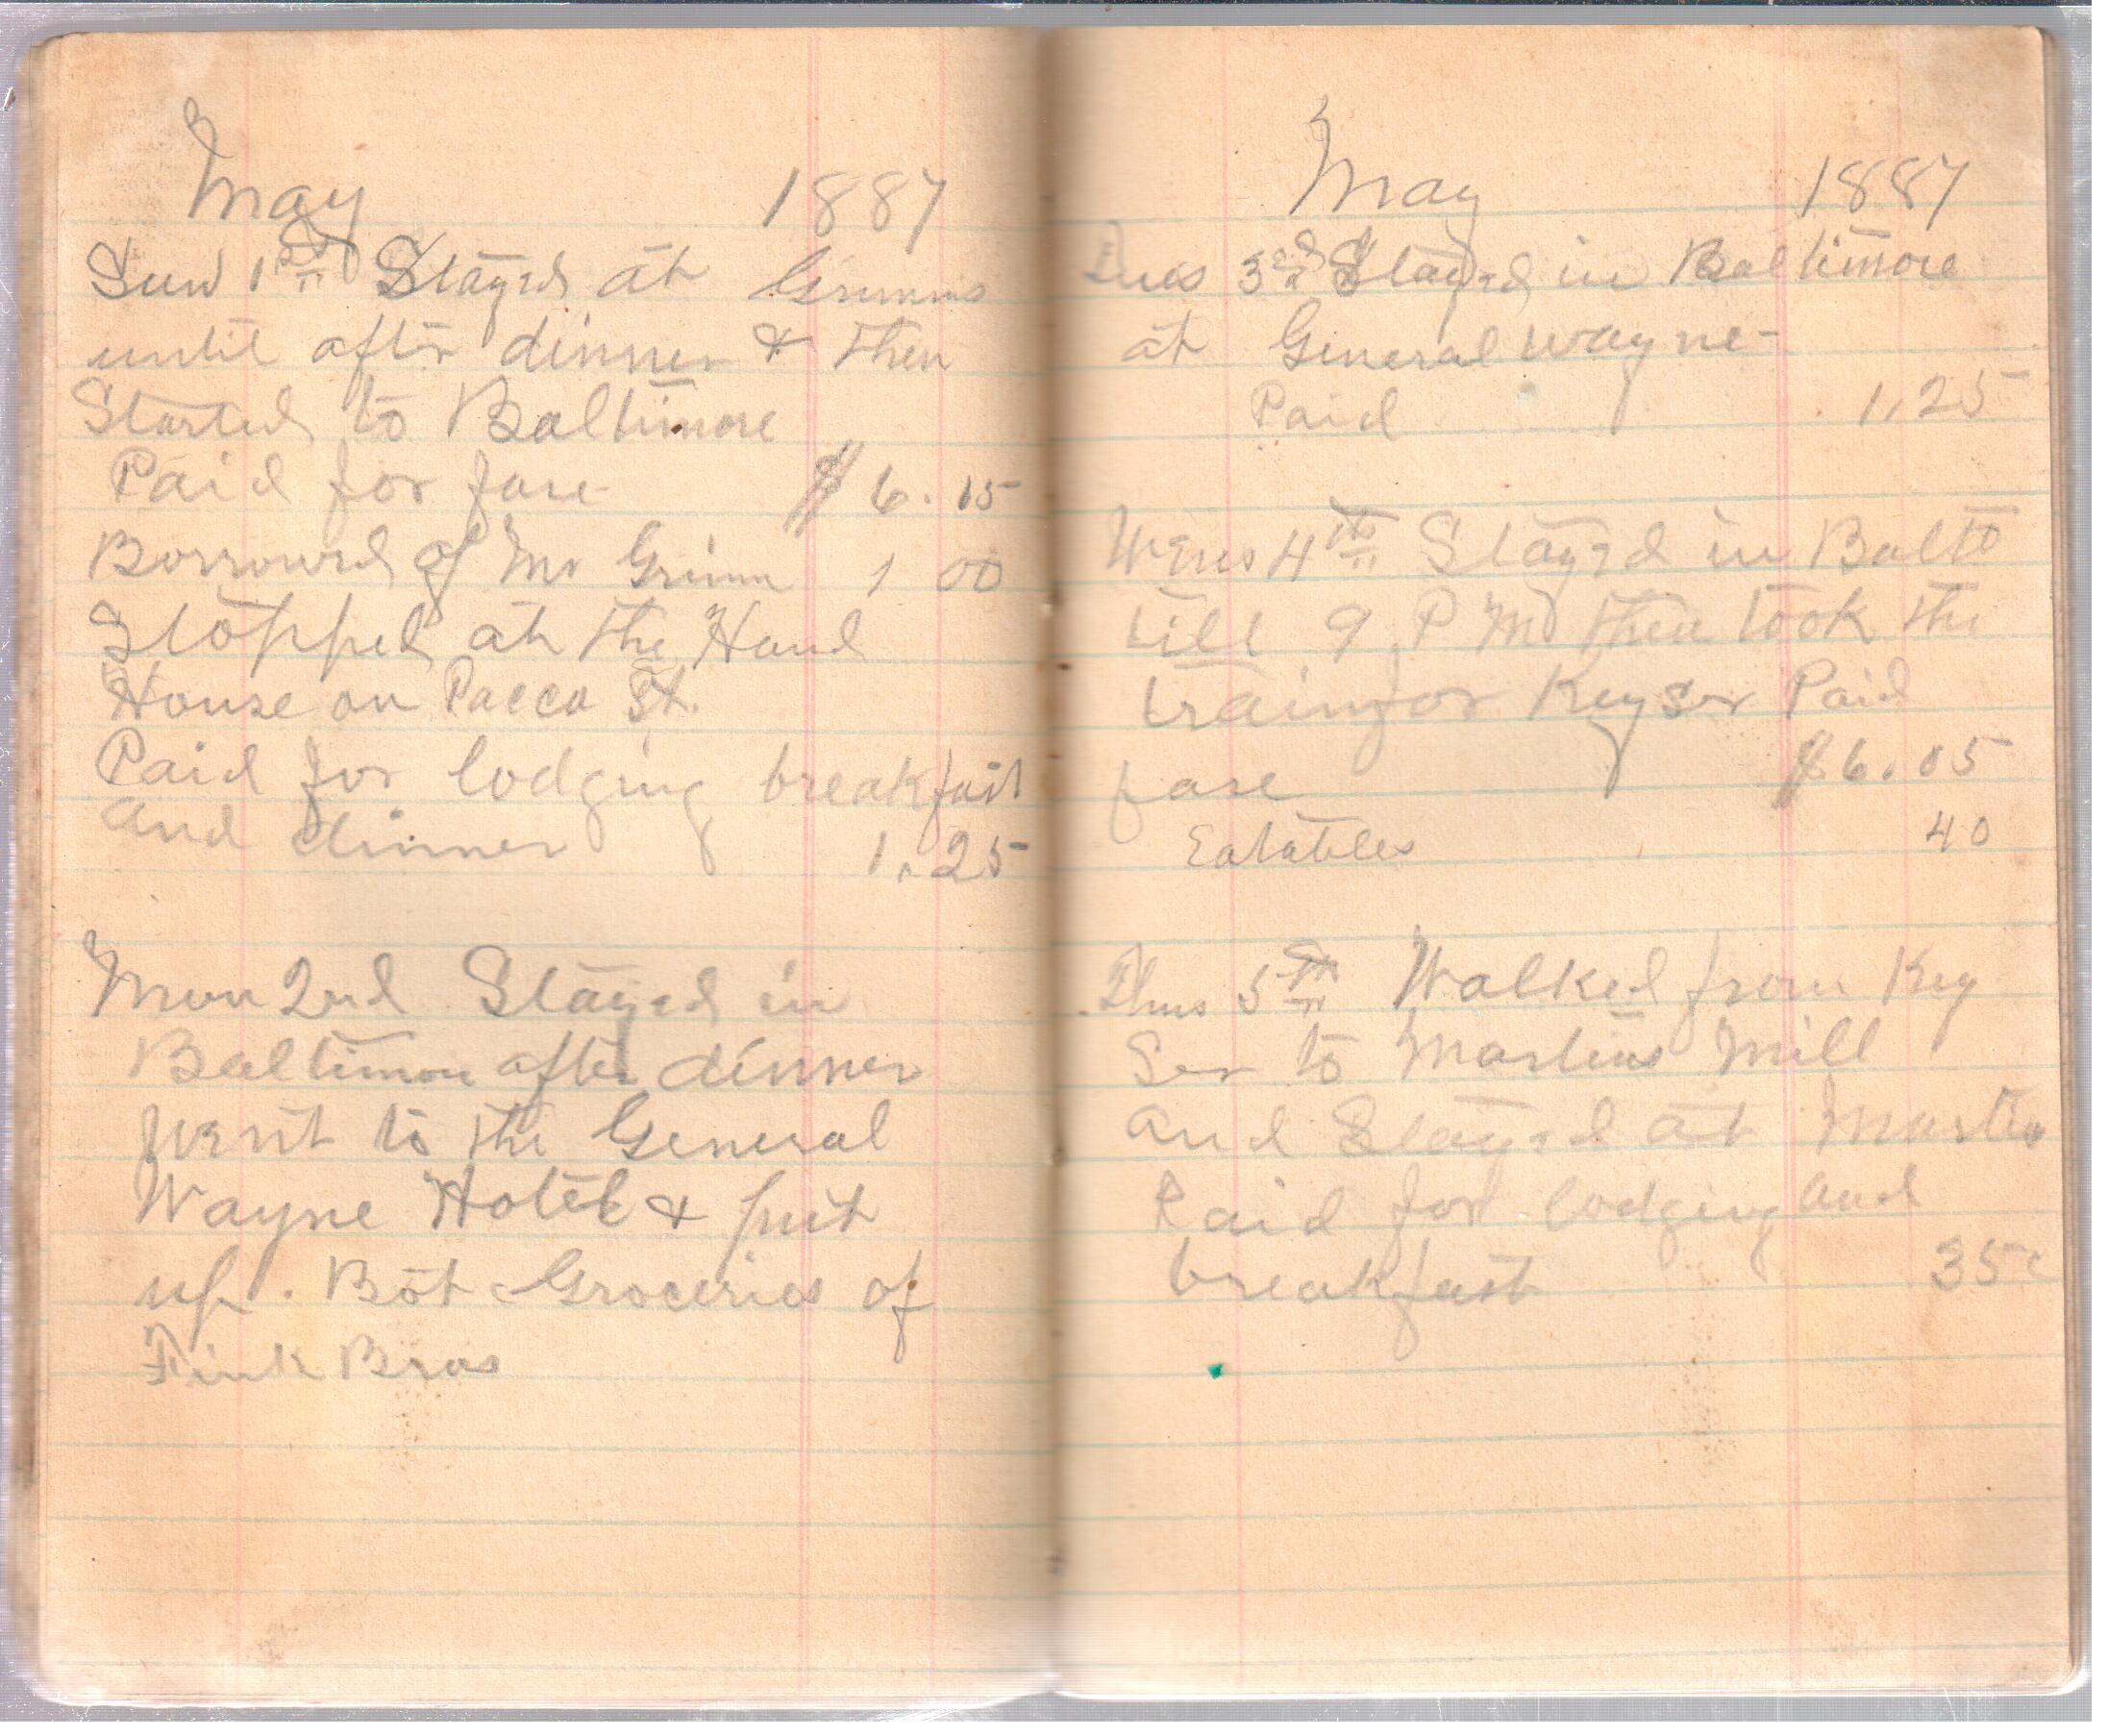 May 1887
Sun 1st Stayed at Grimms
until after dinner & then
Started to Baltimore
Paid for fare $6.15
Borrowed of Mr Grimm 1 00
Stopped at the Hand
House on Pacca St.
Paid for lodging breakfast
and dinner 1.25
Mon 2nd Stayed in
Baltimore after dinner
went to the General
Wayne Hotel & put
up. Bot Groceries of
Fink Bros
May 1887
Tues 3rd Stayed in Baltimore
at General Wayne
Paid 1.25
Wens 4th Stayed in Balto
till 9 P M then took the
train for Keyser Paid
fare $6.05
Eatables 40
Thus 5th Walked from Key
Ser to Martins Mill
and Stayed at Martin
Paid for lodging and
breakfast 35c